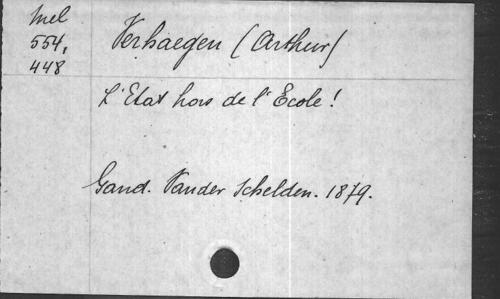 Mel
554,
448
Verhaegen (Arthur)
L'Etat hors de l'Ecole!
Gand. Vander Schelden. 1879.